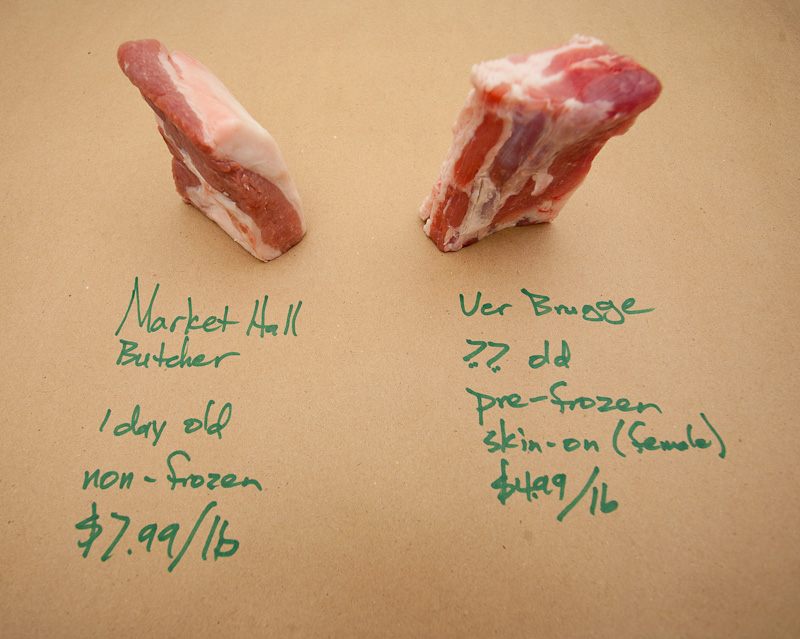 Market Hall
Butcher
1 day old
non-frozen
$7.99/lb
Ver Brugge
?? old
pre-frozen
skin-on (female)
$4.99/lb